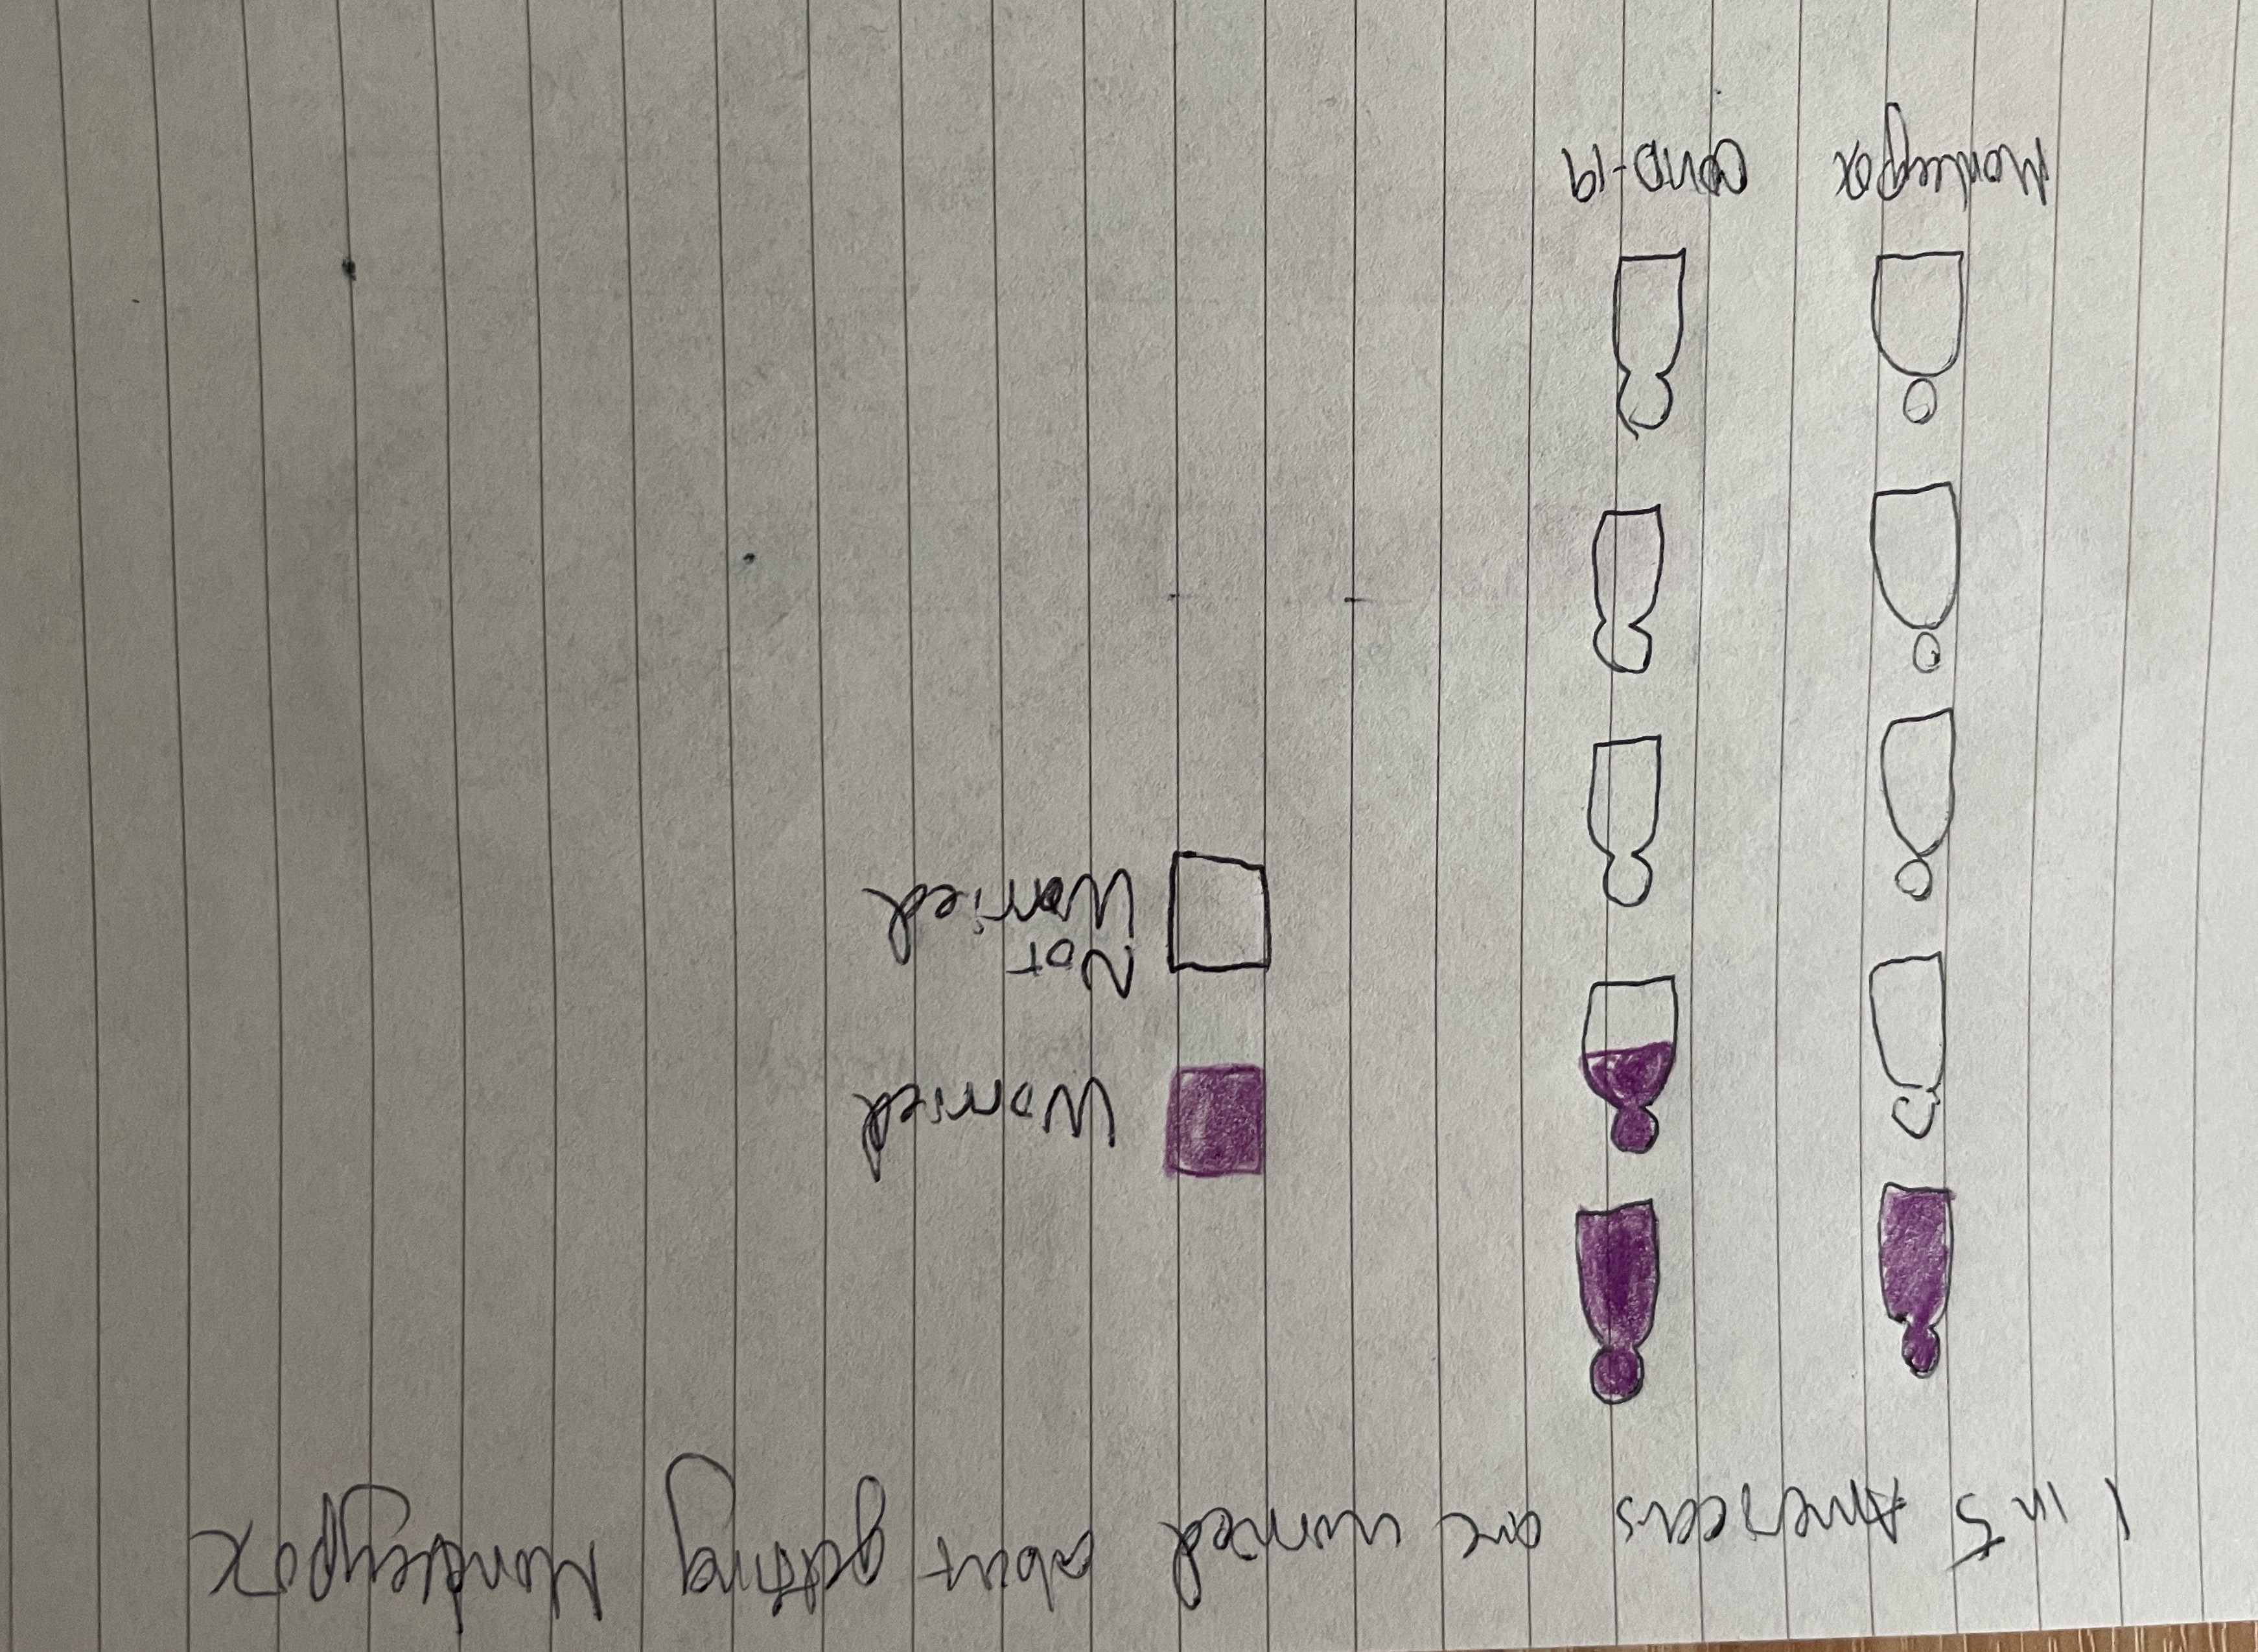 1 in 5 Americans are worried about getting Monkeypox
Worried
Not
Worried
Monkeypox COVID-19